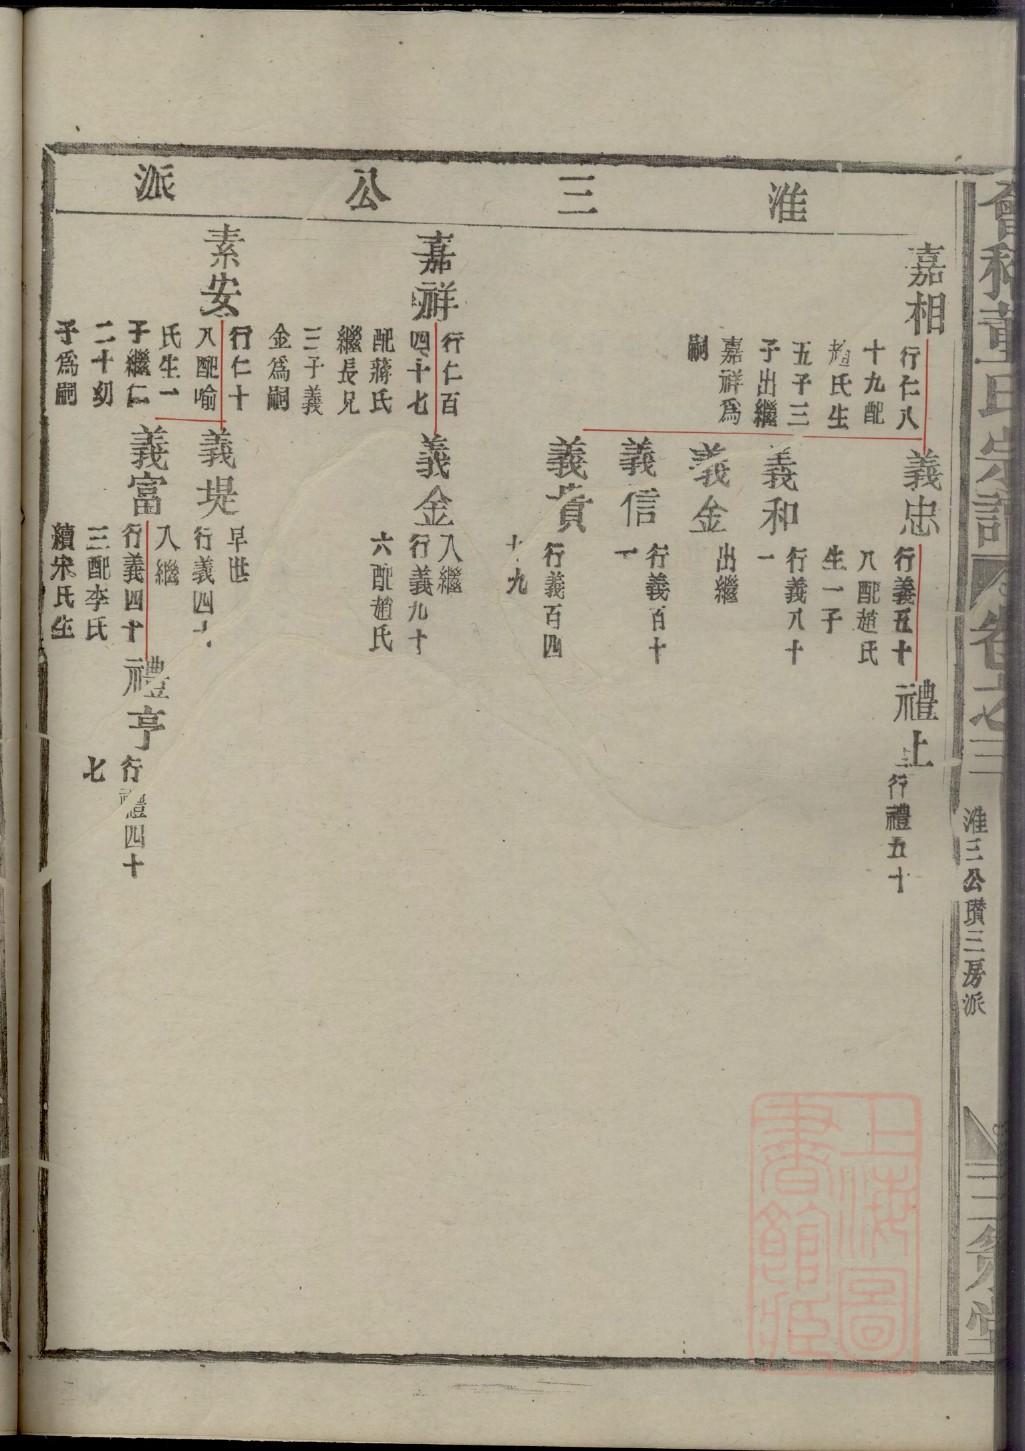 會稽董氏宗譜
卷之三
淮三公瓚三房派
淮三公派
嘉相
行仁八
十九配
趙氏生
五子三
子出繼
嘉祥爲
嗣
義忠
行義五十
八配趙氏
生一子
禮止
行禮五十
義和
行義八十
一
義金
出繼
義信
行義百十
一
義賁
行義百四
十九
嘉祥
行仁百
四十七
配蔣氏
繼長兄
三子義
金爲嗣
義金
入繼
行義九十
六配趙氏
素安
行仁十
八配喻
氏生一
子繼仁
二十幼
子爲嗣
義堤
早世
行義四十
義富
入繼
行義四十
三配李氏
續宋氏生
禮亨
行禮四十
七
上海圖
書館臧